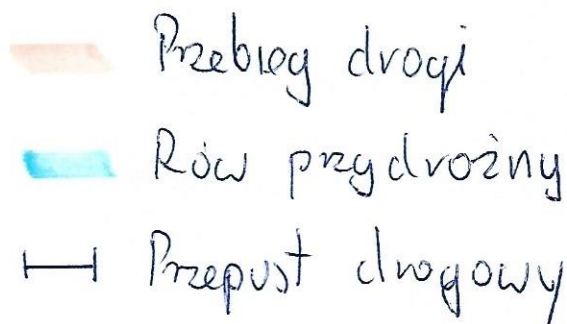 Przebieg drogi
Rów przydrożny
Przepust drogowy